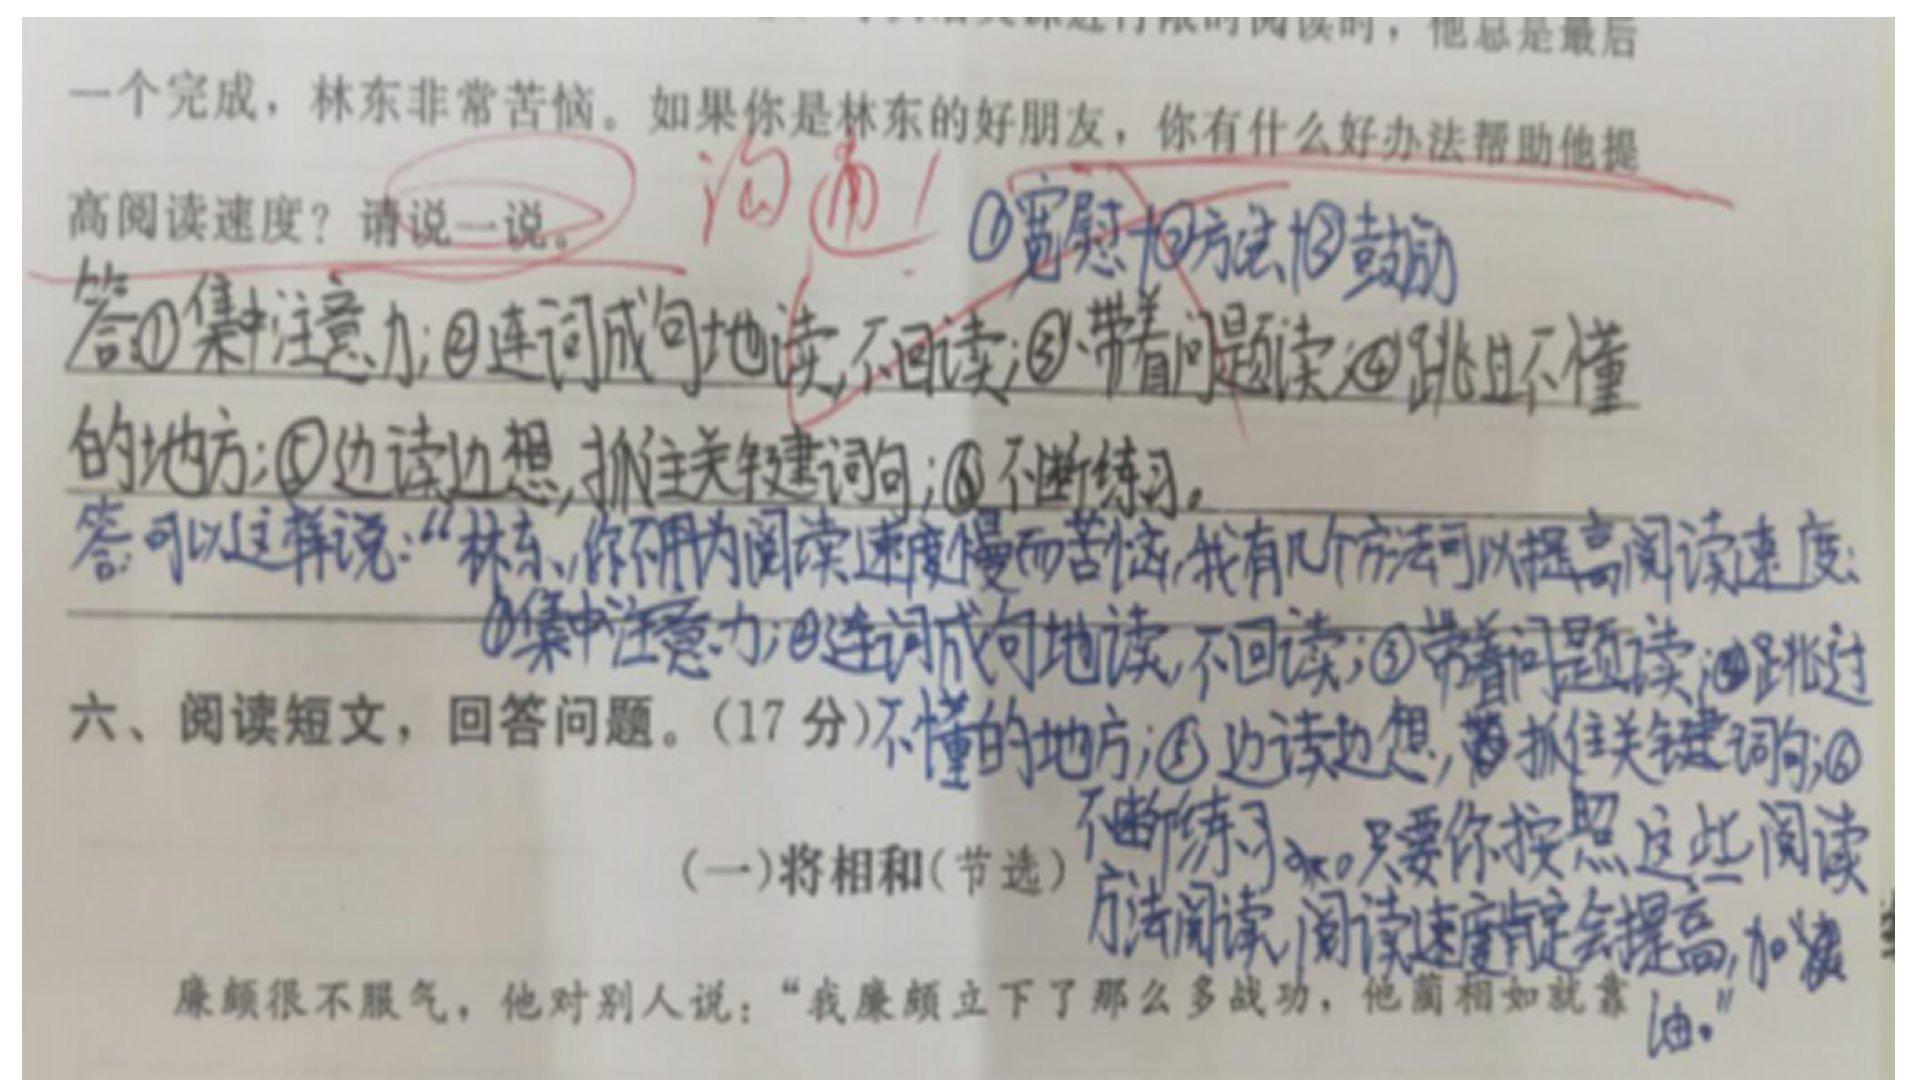 行限时阅读时，他总是最后
一个完成，林东非常苦恼。如果你是林东的好朋友，你有什么好办法帮助他提
高阅读速度？请说一说。
沟通！
①宽慰+②方法+③鼓励
答：①集中注意力；②连词成句地读，不回读；③带着问题读；④跳且不懂
的地方；⑤边读边想，抓住关键词句；⑥不断练习。
答：可以这样说：“林东，你不用为阅读速度慢而苦恼，我有几个方法可以提高阅读速度：
①集中注意力；②连词成句地读，不回读；③带着问题读；④跳过
六、阅读短文，回答问题。(17分)
不懂的地方；⑤边读边想，抓住关键词句；⑥
不断练习。只要你按照这些阅读
(一)将相和(节选)
方法阅读，阅读速度肯定会提高，加
油。”
廉颇很不服气，他对别人说：“我廉颇立下了那么多战功，他蔺相如就靠